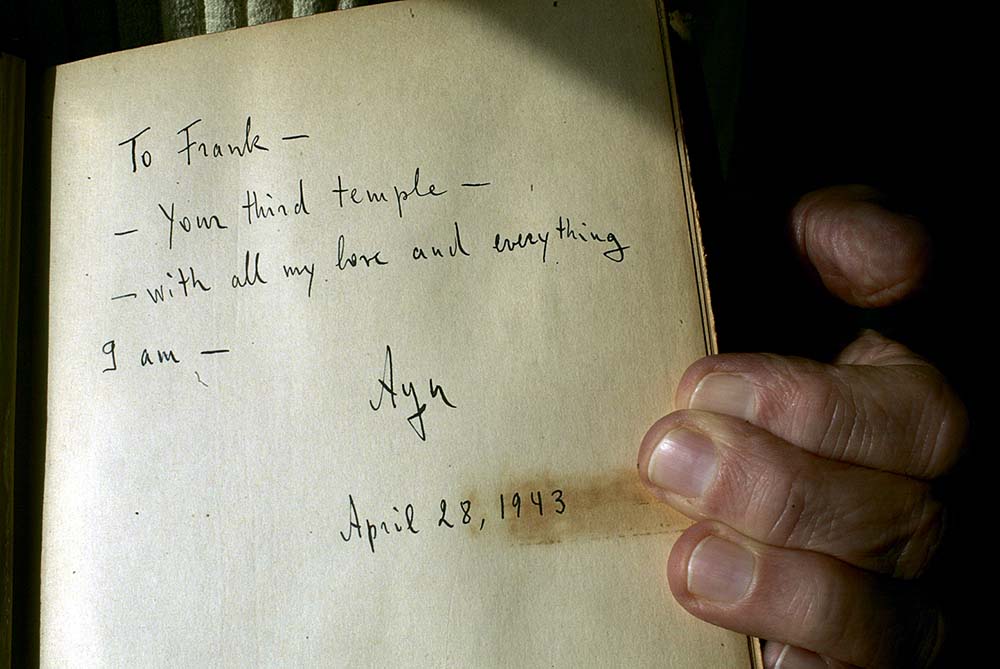 To Frank —
— Your third temple —
— with all my love and everything
I am —
Ayn
April 28, 1943